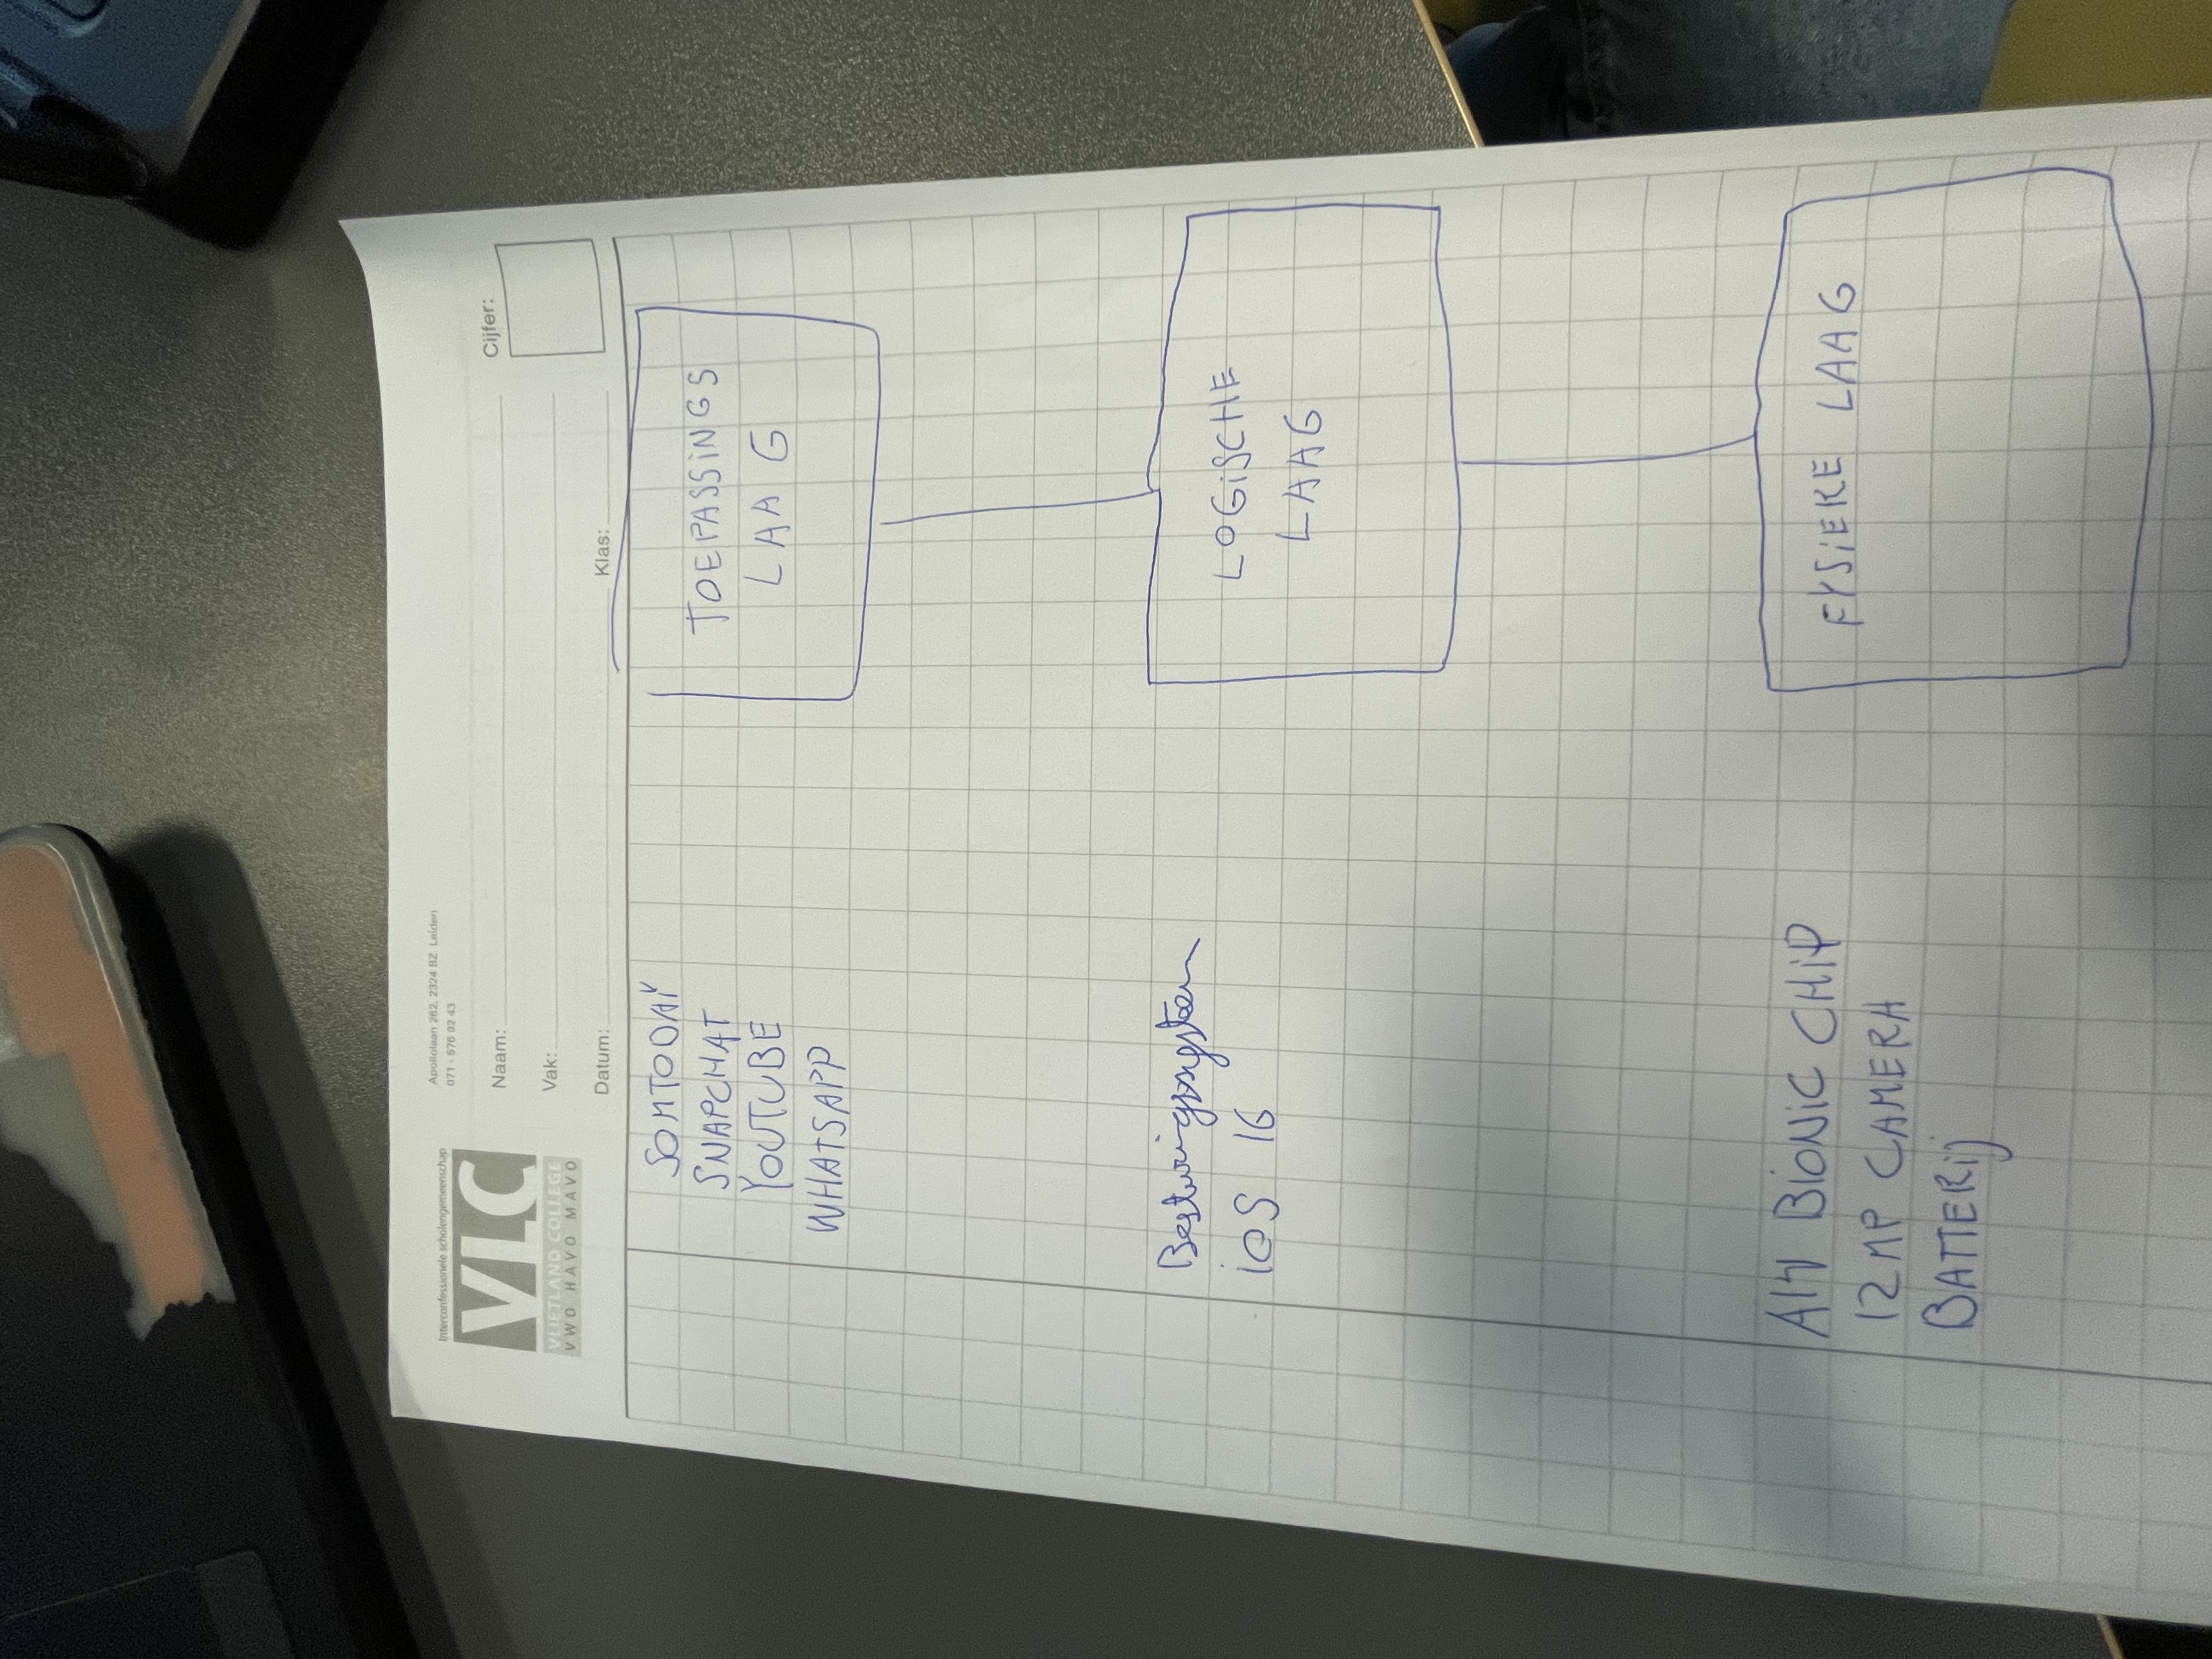 Interconfessionele scholengemeenschap
VLC
VLIETLAND COLLEGE
VWO HAVO MAVO
Apollolaan 262, 2324 BZ Leiden
071 - 576 92 43
Naam:
Cijfer:
Vak:
Datum:
Klas:
SOMTODAY
SNAPCHAT
YOUTUBE
WHATSAPP
TOEPASSINGS
LAAG
Besturingssysteem
iOS 16
LOGISCHE
LAAG
A14 BIONIC CHIP
12 MP CAMERA
BATTERIJ
FYSIEKE LAAG